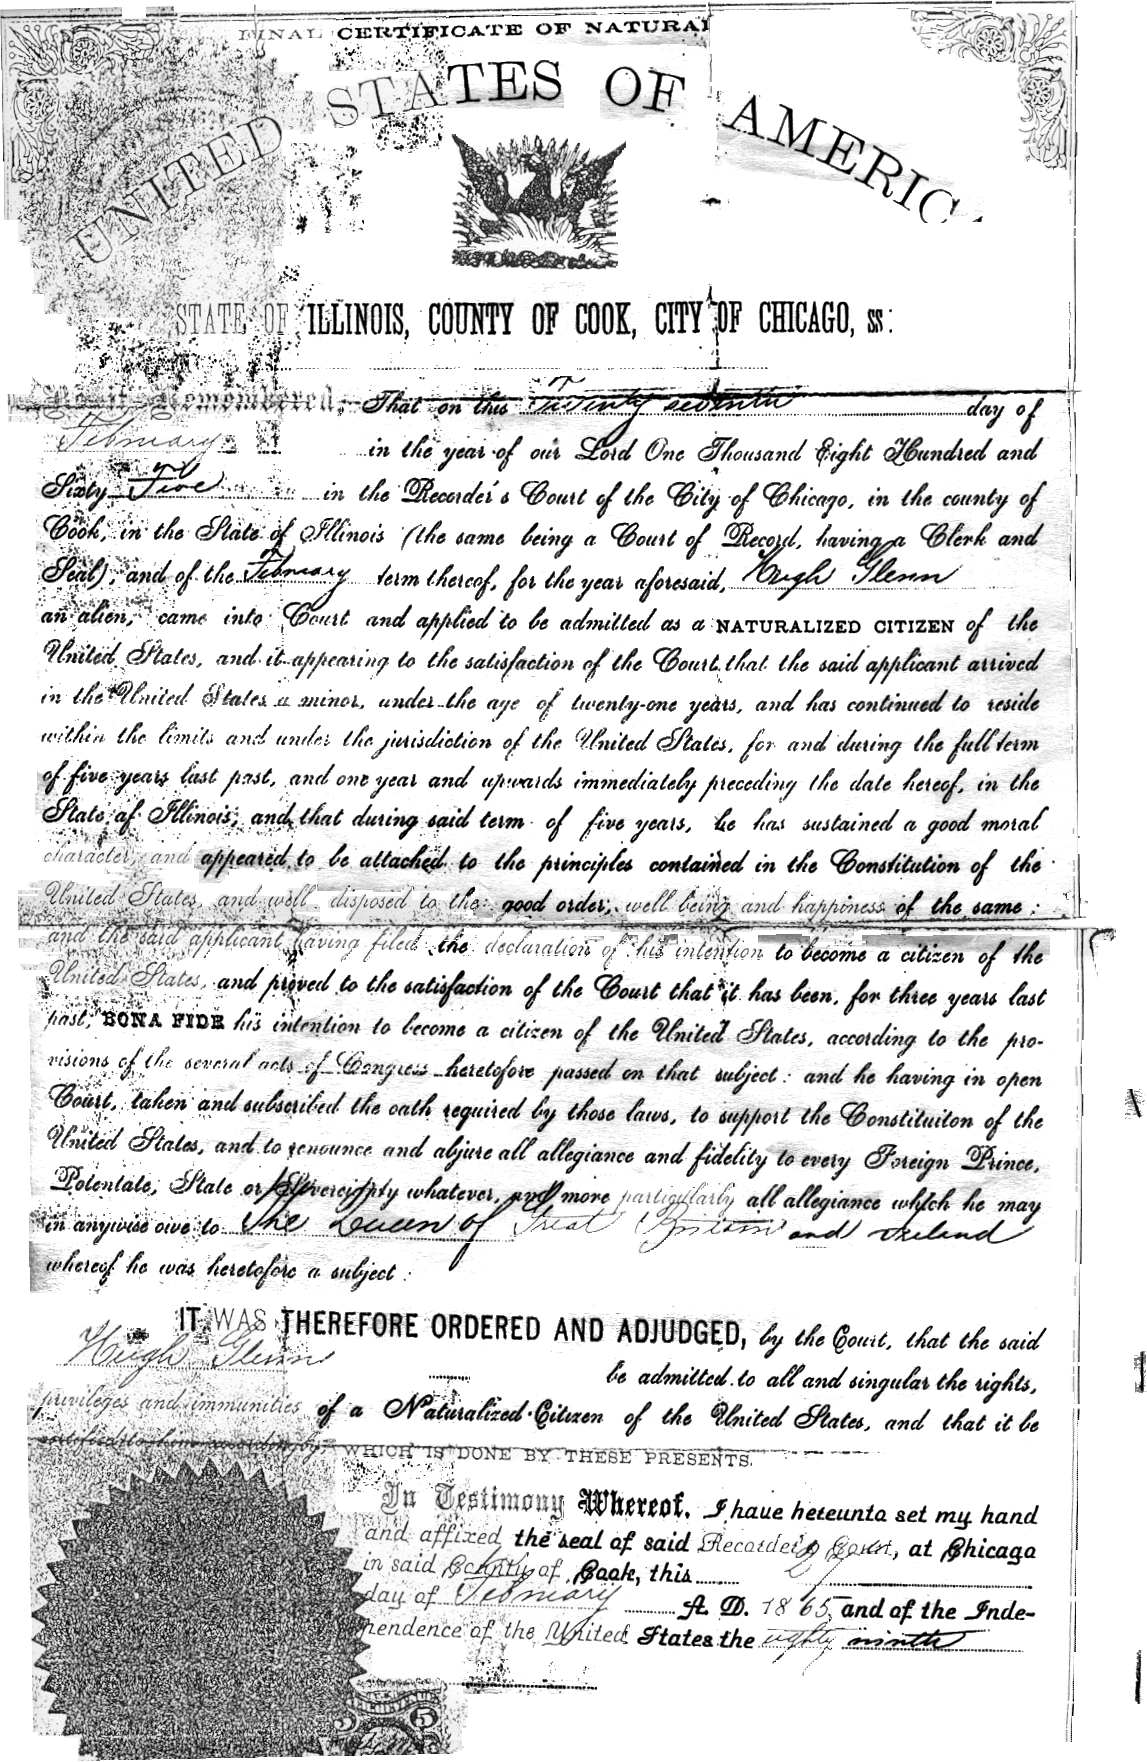 FINAL CERTIFICATE OF NATURAL
UNITED STATES OF AMERIC
STATE OF ILLINOIS, COUNTY OF COOK, CITY OF CHICAGO, SS:
Be it Remembered, That on this Twenty seventh day of
February in the year of our Lord One Thousand Eight Hundred and
Sixty Five in the Recorder's Court of the City of Chicago, in the county of
Cook, in the State of Illinois (the same being a Court of Record, having a Clerk and
Seal), and of the February term thereof, for the year aforesaid, Hugh Glenn
an alien, came into Court and applied to be admitted as a NATURALIZED CITIZEN of the
United States, and it appearing to the satisfaction of the Court that the said applicant arrived
in the United States a minor, under the age of twenty-one years, and has continued to reside
within the limits and under the jurisdiction of the United States, for and during the full term
of five years last past, and one year and upwards immediately preceding the date hereof, in the
State of Illinois; and that during said term of five years, he has sustained a good moral
character, and appeared to be attached to the principles contained in the Constitution of the
United States, and well disposed to the good order, well being and happiness of the same;
and the said applicant having filed the declaration of his intention to become a citizen of the
United States, and proved to the satisfaction of the Court that it has been, for three years last
past, BONA FIDE his intention to become a citizen of the United States, according to the pro-
visions of the several acts of Congress heretofore passed on that subject: and he having in open
Court, taken and subscribed the oath required by those laws, to support the Constituiton of the
United States, and to renounce and abjure all allegiance and fidelity to every Foreign Prince,
Potentate, State or Sovereignty whatever, and more particularly all allegiance which he may
in anywise owe to The Queen of Great Britain and Ireland
whereof he was heretofore a subject:
IT WAS THEREFORE ORDERED AND ADJUDGED, by the Court, that the said
Hugh Glenn be admitted to all and singular the rights,
privileges and immunities of a Naturalized Citizen of the United States, and that it be
certified to him accordingly, WHICH IS DONE BY THESE PRESENTS.
In Testimony Whereof, I have hereunto set my hand
and affixed the seal of said Recorder's Court, at Chicago
in said County of Cook, this 27
day of February A. D. 1865 and of the Inde-
pendence of the United States the eighty ninth
5